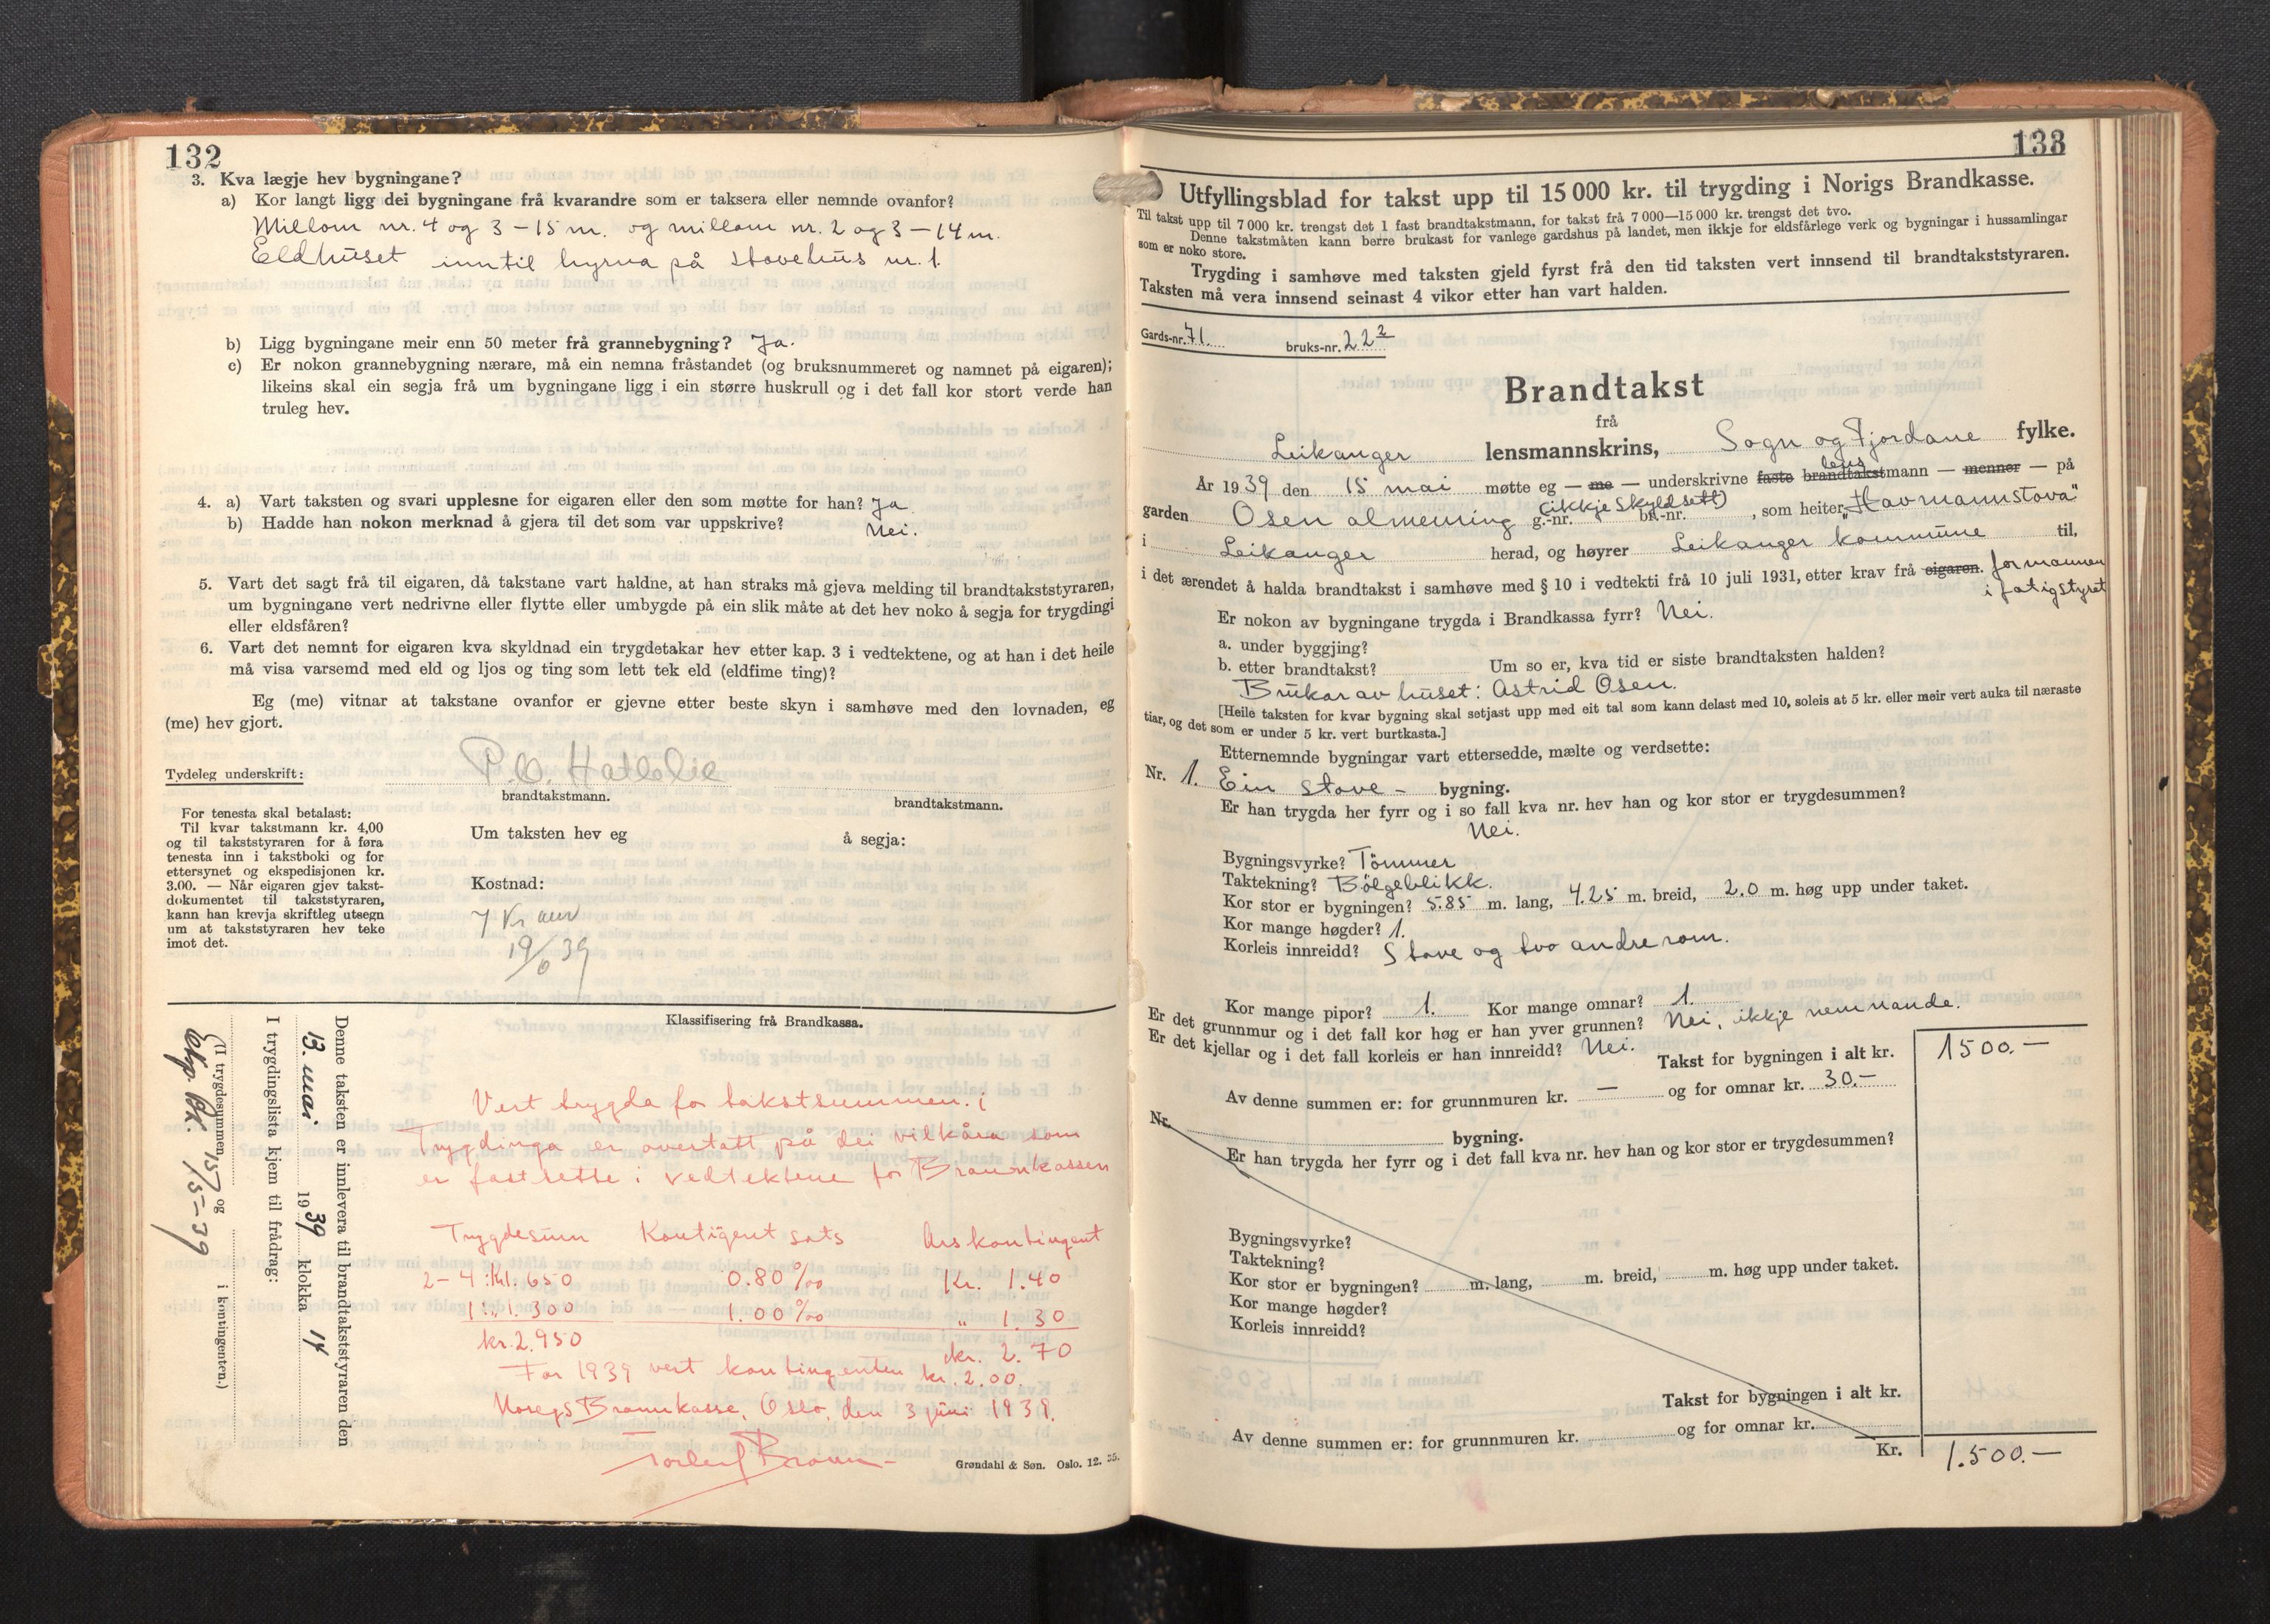 132
3. Kva lægje hev bygningane?
a) Kor langt ligg dei bygningane frå kvarandre som er taksera eller nemnde ovanfor?
Millom nr. 4 og 3 – 15 m. og millom nr. 2 og 3 – 14 m.
Eldhuset inntil hyrna på stovehus nr. 1.
b) Ligg bygningane meir enn 50 meter frå grannebygning? Ja.
c) Er nokon grannebygning nærare, må ein nemna fråstandet (og bruksnummeret og namnet på eigaren);
likeins skal ein segja frå um bygningane ligg i ein større huskrull og i det fall kor stort verde han
truleg hev.
4. a) Vart taksten og svari upplesne for eigaren eller den som møtte for han? Ja
b) Hadde han nokon merknad å gjera til det som var uppskrive? Nei.
5. Vart det sagt frå til eigaren, då takstane vart haldne, at han straks må gjeva melding til brandtakststyraren,
um bygningane vert nedrivne eller flytte eller umbygde på ein slik måte at det hev noko å segja for trygdingi
eller eldsfåren?
6. Vart det nemnt for eigaren kva skyldnad ein trygdetakar hev etter kap. 3 i vedtektene, og at han i det heile
må visa varsemd med eld og ljos og ting som lett tek eld (eldfime ting)?
Eg (me) vitnar at takstane ovanfor er gjevne etter beste skyn i samhøve med den lovnaden, eg
(me) hev gjort.
Tydeleg underskrift: P. O. Hatlelie
brandtakstmann. brandtakstmann.
For tenesta skal betalast:
Til kvar takstmann kr. 4,00
og til takststyraren for å føra
tenesta inn i takstboki og for
ettersynet og ekspedisjonen kr.
3.00. — Når eigaren gjev takst-
dokumentet til takststyraren,
kann han krevja skriftleg utsegn
um at takststyraren hev teke
imot det.
Um taksten hev eg å segja:
Kostnad:
7 kr
19/6 39
Denne taksten er innlevera til brandtakststyraren den
13. mai. 1939 klokka 14
I trygdingslista kjem til frådrag:
(I trygdesummen og i kontingenten.)
15/5-39
Klassifisering frå Brandkassa.
Vert trygda for takstsummen. i
Trygdinga er overtatt på dei vilkåra som
er fastsette i vedtektene for Brannkassen
Trygdesum Kontigent sats Årskontingent
2–4: kl. 650 0.80 ‰ Kr. 1.40
1: „ 1.300 1.00 ‰ „ 1.30
kr. 2.950 kr. 2.70
For 1939 vert kontingenten kr. 2.00.
Noregs Brannkasse, Oslo, den 3 juni 1939.
Grøndahl & Søn. Oslo. 12. 35.
133
Utfyllingsblad for takst upp til 15 000 kr. til trygding i Norigs Brandkasse.
Til takst upp til 7 000 kr. trengst det 1 fast brandtakstmann, for takst frå 7 000—15 000 kr. trengst det tvo.
Denne takstmåten kann berre brukast for vanlege gardshus på landet, men ikkje for eldsfårlege verk og bygningar i hussamlingar
som er noko store.
Trygding i samhøve med taksten gjeld fyrst frå den tid taksten vert innsend til brandtakststyraren.
Taksten må vera innsend seinast 4 vikor etter han vart halden.
Gards-nr. 71. bruks-nr. 22²
Brandtakst
frå
Leikanger lensmannskrins, Sogn og Fjordane fylke.
År 1939 den 15 mai møtte eg — me — underskrivne faste brandtakst lensmann — menner — på
garden Osen almenning g.-nr. (ikkje skyldsett) br.-nr. , som heiter „Havmannstova"
i Leikanger herad, og høyrer Leikanger kommune til,
i det ærendet å halda brandtakst i samhøve med § 10 i vedtekti frå 10 juli 1931, etter krav frå eigaren. formannen
i fatigstyret
Er nokon av bygningane trygda i Brandkassa fyrr? Nei.
a. under byggjing?
b. etter brandtakst? Um so er, kva tid er siste brandtaksten halden?
Brukar av huset: Astrid Osen.
[Heile taksten for kvar bygning skal setjast upp med eit tal som kann delast med 10, soleis at 5 kr. eller meir vert auka til næraste
tiar, og det som er under 5 kr. vert burtkasta.]
Etternemnde bygningar vart ettersedde, mælte og verdsette:
Nr. 1. Ein stove- bygning.
Er han trygda her fyrr og i so fall kva nr. hev han og kor stor er trygdesummen?
Nei.
Bygningsvyrke? Tömmer
Taktekning? Bölgeblikk.
Kor stor er bygningen? 5.85 m. lang, 4.25 m. breid, 2.0 m. høg upp under taket.
Kor mange høgder? 1.
Korleis innreidd? Stove og tvo andre rom.
Kor mange pipor? 1. Kor mange omnar? 1.
Er det grunnmur og i det fall kor høg er han yver grunnen? Nei, ikkje nemnande.
Er det kjellar og i det fall korleis er han innreidd? Nei.
Takst for bygningen i alt kr. 1500.—
Av denne summen er: for grunnmuren kr. — og for omnar kr. 30.—
Nr. bygning.
Er han trygda her fyrr og i det fall kva nr. hev han og kor stor er trygdesummen?
Bygningsvyrke?
Taktekning?
Kor stor er bygningen? m. lang, m. breid, m. høg upp under taket.
Kor mange høgder?
Korleis innreidd?
Takst for bygningen i alt kr.
Av denne summen er: for grunnmuren kr. og for omnar kr.
Kr. 1.500.—